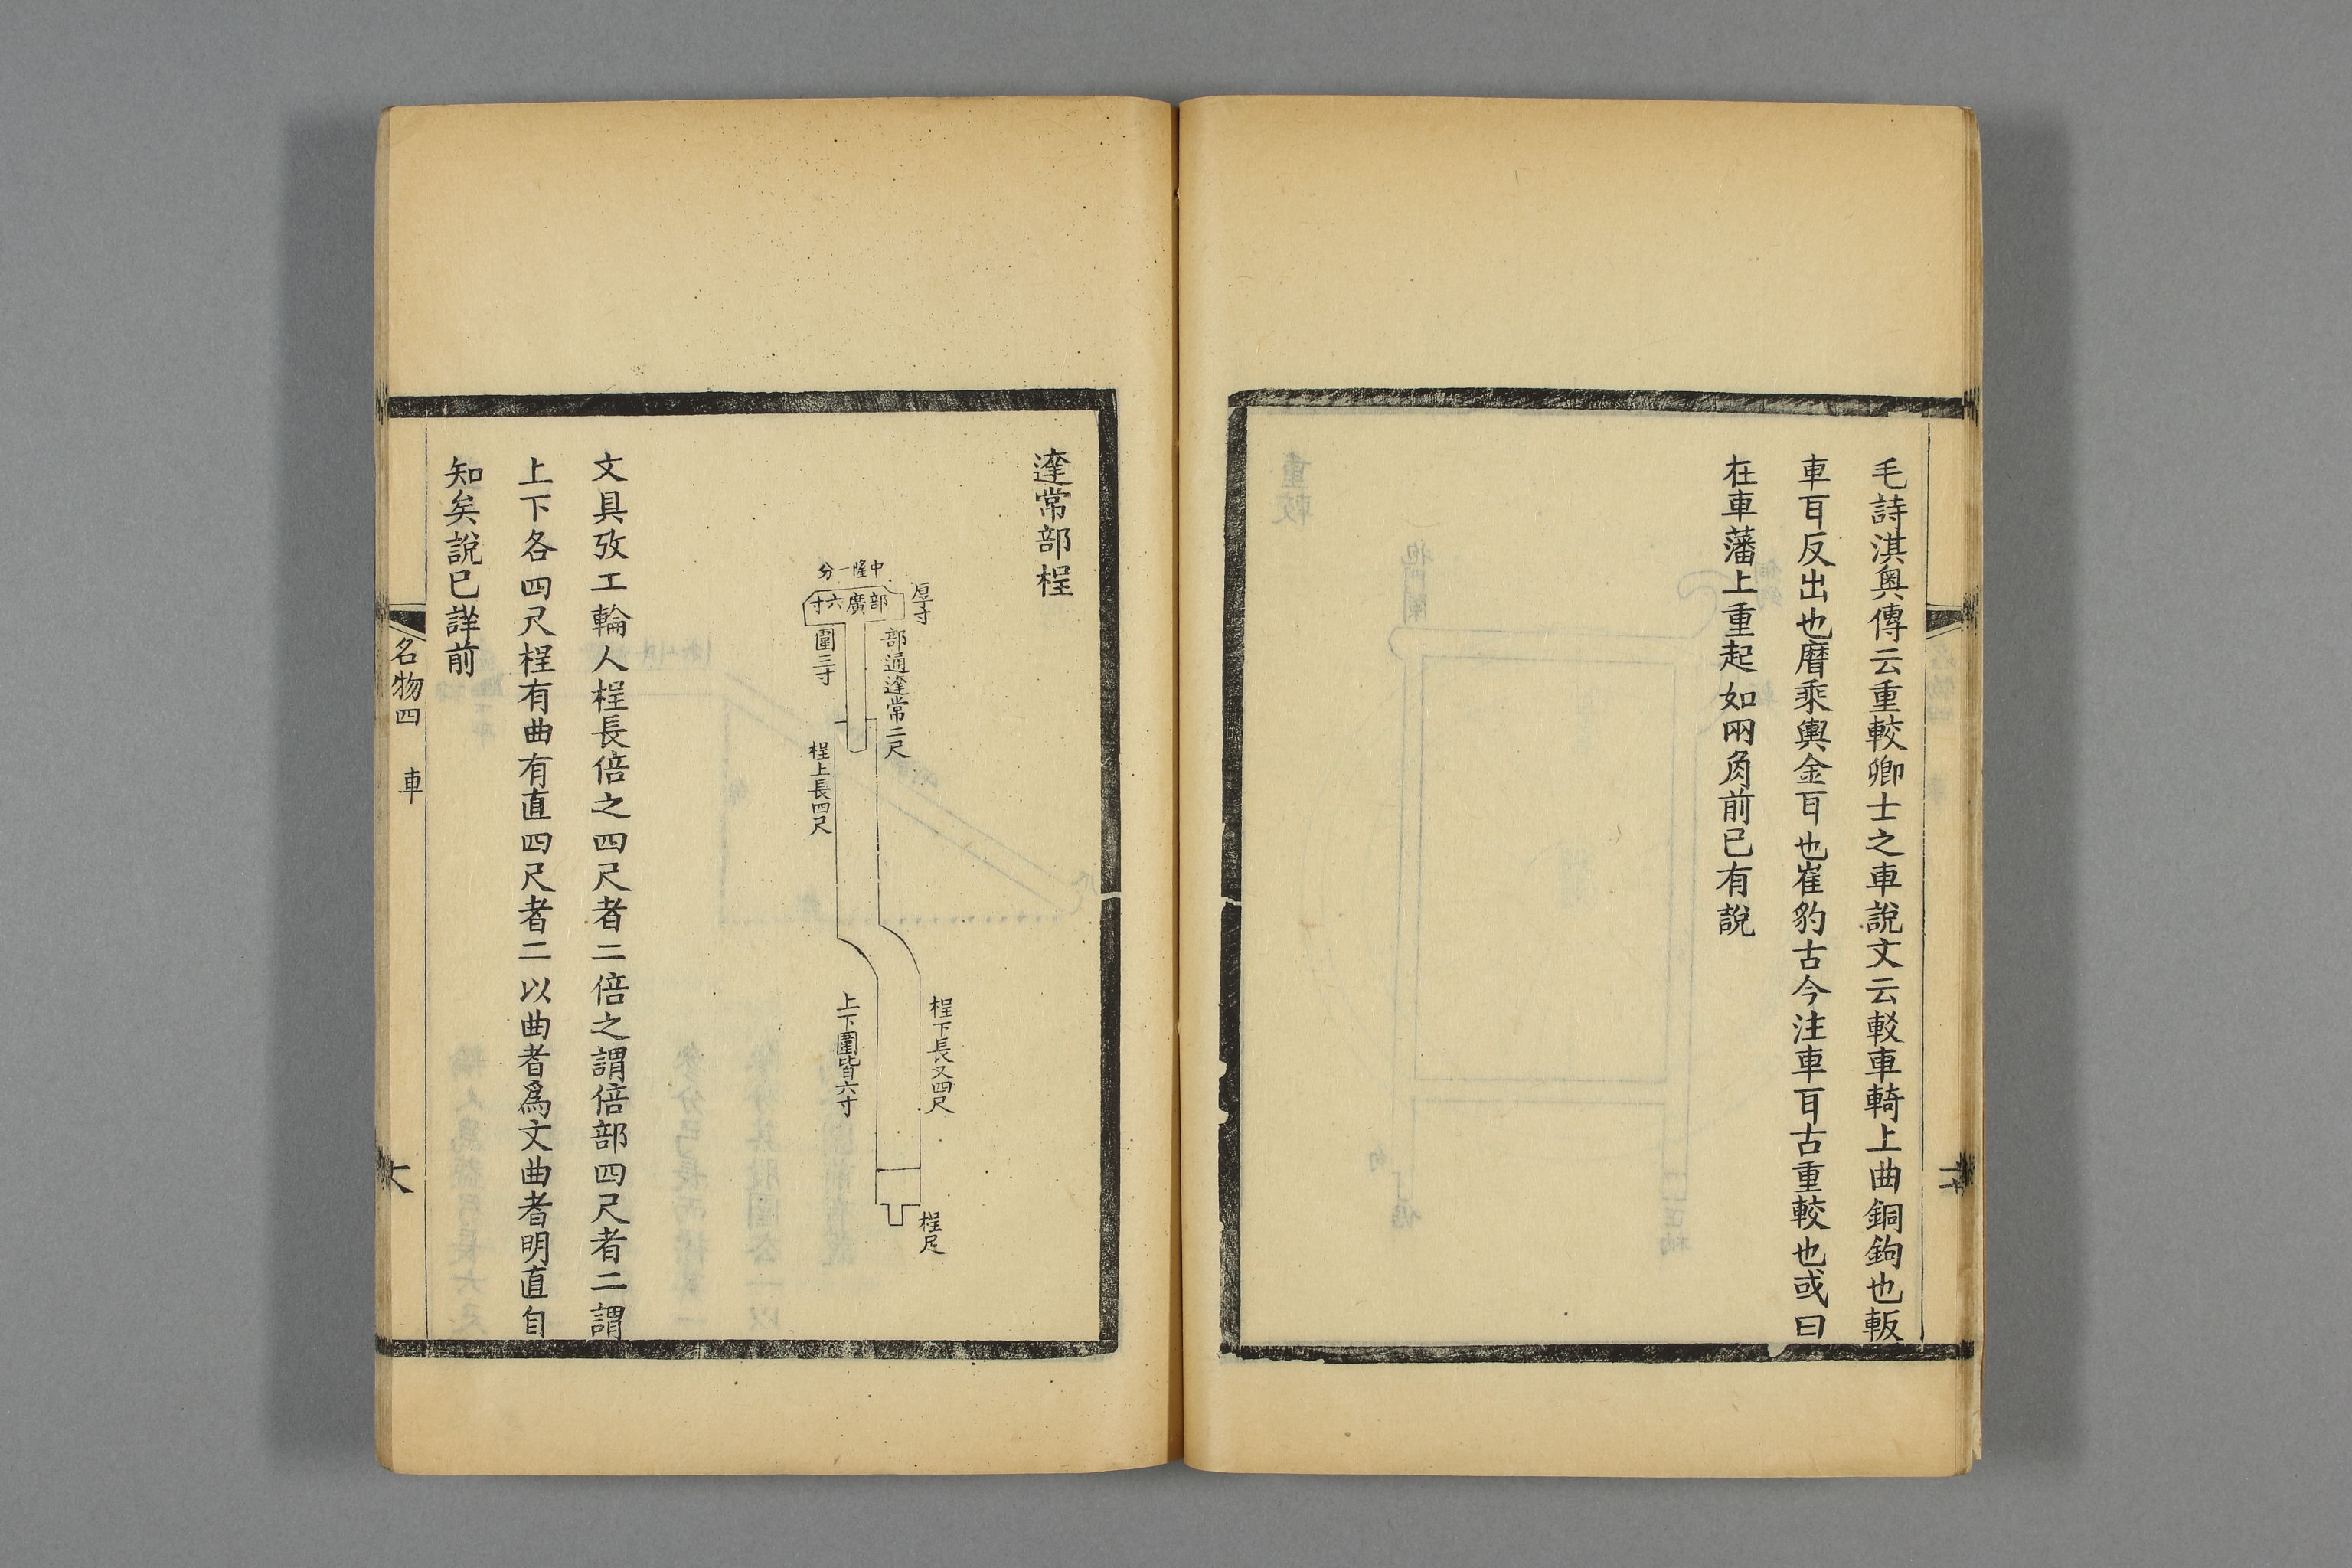 毛詩淇奧傳云重較卿士之車說文云較車輢上曲銅鉤也䡊
車耳反出也曆乘輿金耳也崔豹古今注車耳古重較也或曰
在車藩上重起如兩角前已有說
達常部桯
中隆一分
部廣六寸
厚寸
部通達常二尺
圍三寸
桯上長四尺
桯下長又四尺
上下圍皆六寸
桯尾
文具攷工輪人桯長倍之四尺者二倍之謂倍部四尺者二謂
上下各四尺桯有曲有直四尺者二以曲者爲文曲者明直自
知矣說已詳前
名物四 車